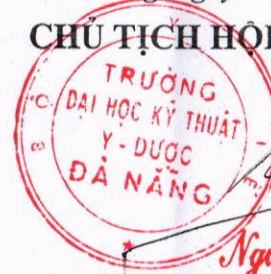 CHỦ TỊCH HỘI
TRƯỜNG
ĐẠI HỌC KỸ THUẬT
Y - DƯỢC
ĐÀ NẴNG